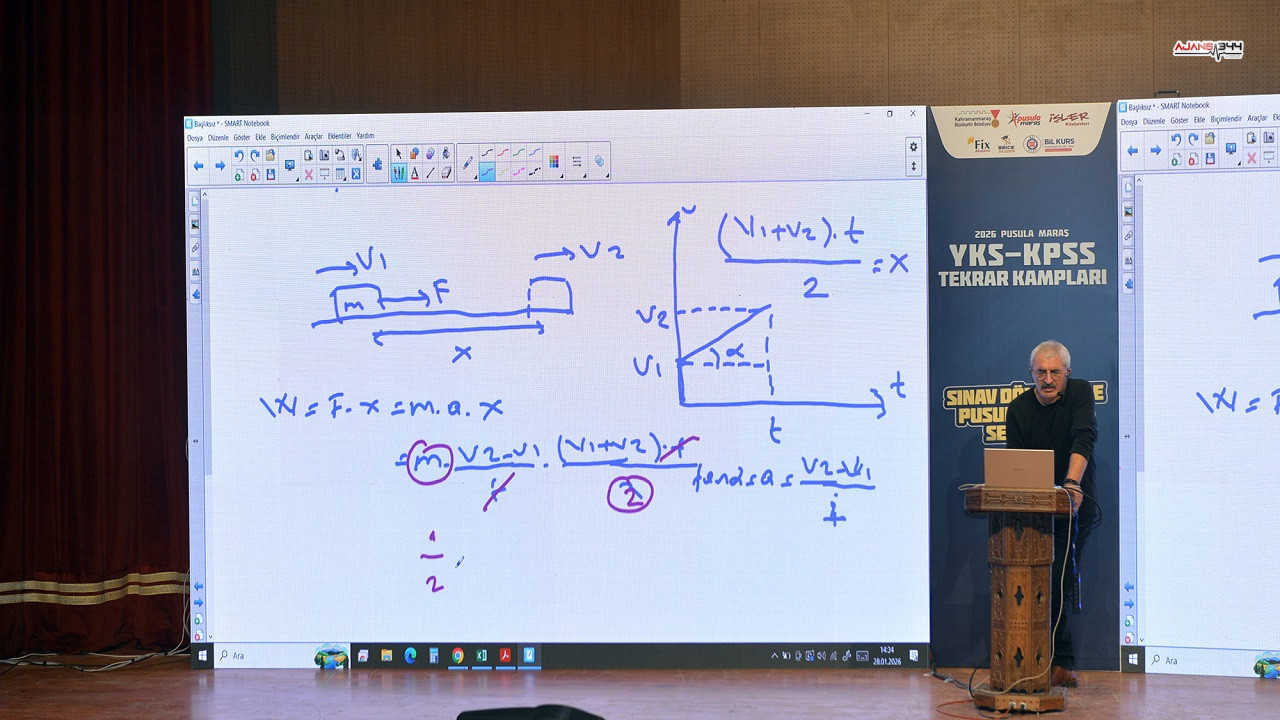 AJANS 344
Başlıksız * - SMART Notebook
Dosya Düzenle Göster Ekle Biçimlendir Araçlar Eklentiler Yardım
V1
V2
m
F
x
W = F. x = m. a. x
= m. V2-V1 / t . (V1+V2).t / 2
1
2
υ
(V1+V2). t
2
= x
V2
V1
α
t
t
a = V2-V1 / t
Ara
14:34
28.01.2026
Kahramanmaraş
Büyükşehir Belediyesi
pusula
maraş
İŞLER
Kitabevleri
Fix
BRICK
BİL KURS
2026 PUSULA MARAŞ
YKS-KPSS
TEKRAR KAMPLARI
SINAV DÖ
E
PUSU
SE
Başlıksız * - SMART Notebook
Dosya Düzenle Göster Ekle Biçimlendir Araçlar
W =
Ara